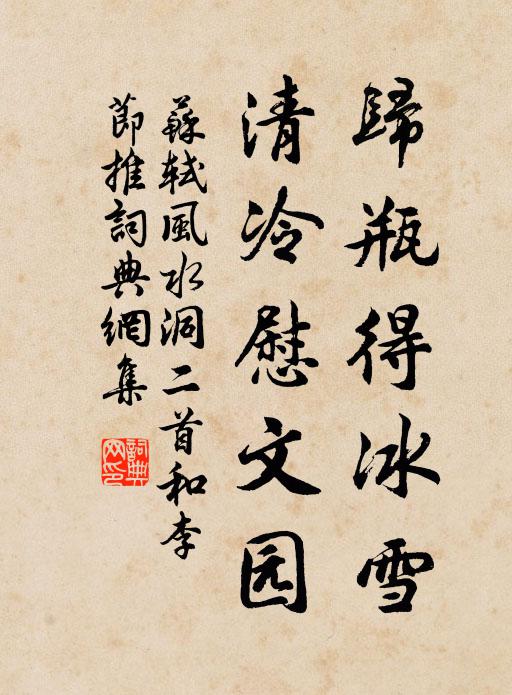 歸瓶得冰雪
清冷慰文园
蘇軾風水洞二首和李
節推詞典網集
詞典
网印